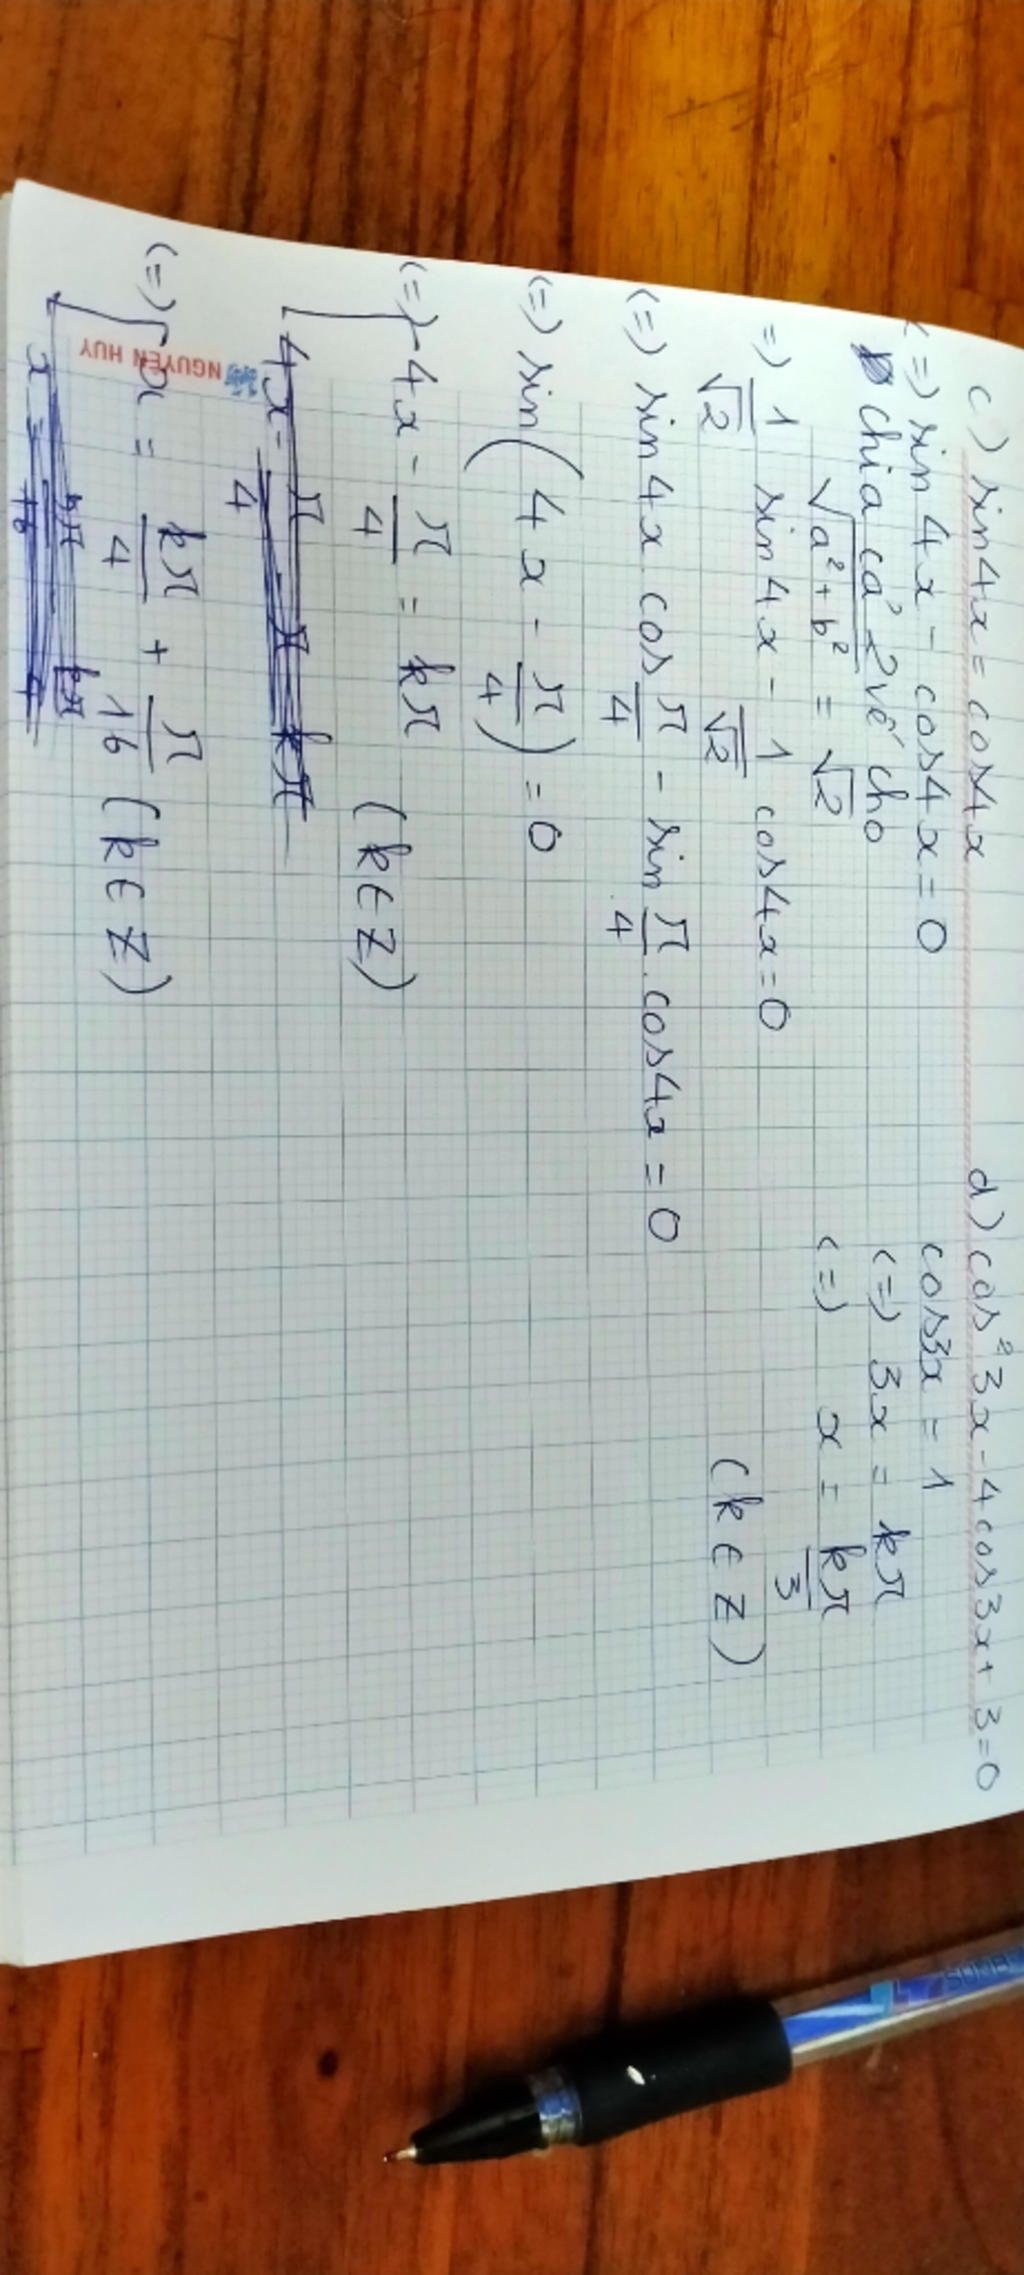 c) sin4x = cos4x
<=> sin4x - cos4x = 0
chia cả 2 vế cho
√(a²+b²) = √2
=> 1/√2 sin4x - 1/√2 cos4x = 0
<=> sin4x cos π/4 - sin π/4 . cos4x = 0
<=> sin(4x - π/4) = 0
<=> 4x - π/4 = kπ (k ∈ Z)
<=> x = kπ/4 + π/16 (k ∈ Z)
d) cos²3x - 4cos3x + 3 = 0
cos3x = 1
<=> 3x = kπ
<=> x = kπ/3
(k ∈ Z)
NGUYÊN HUY